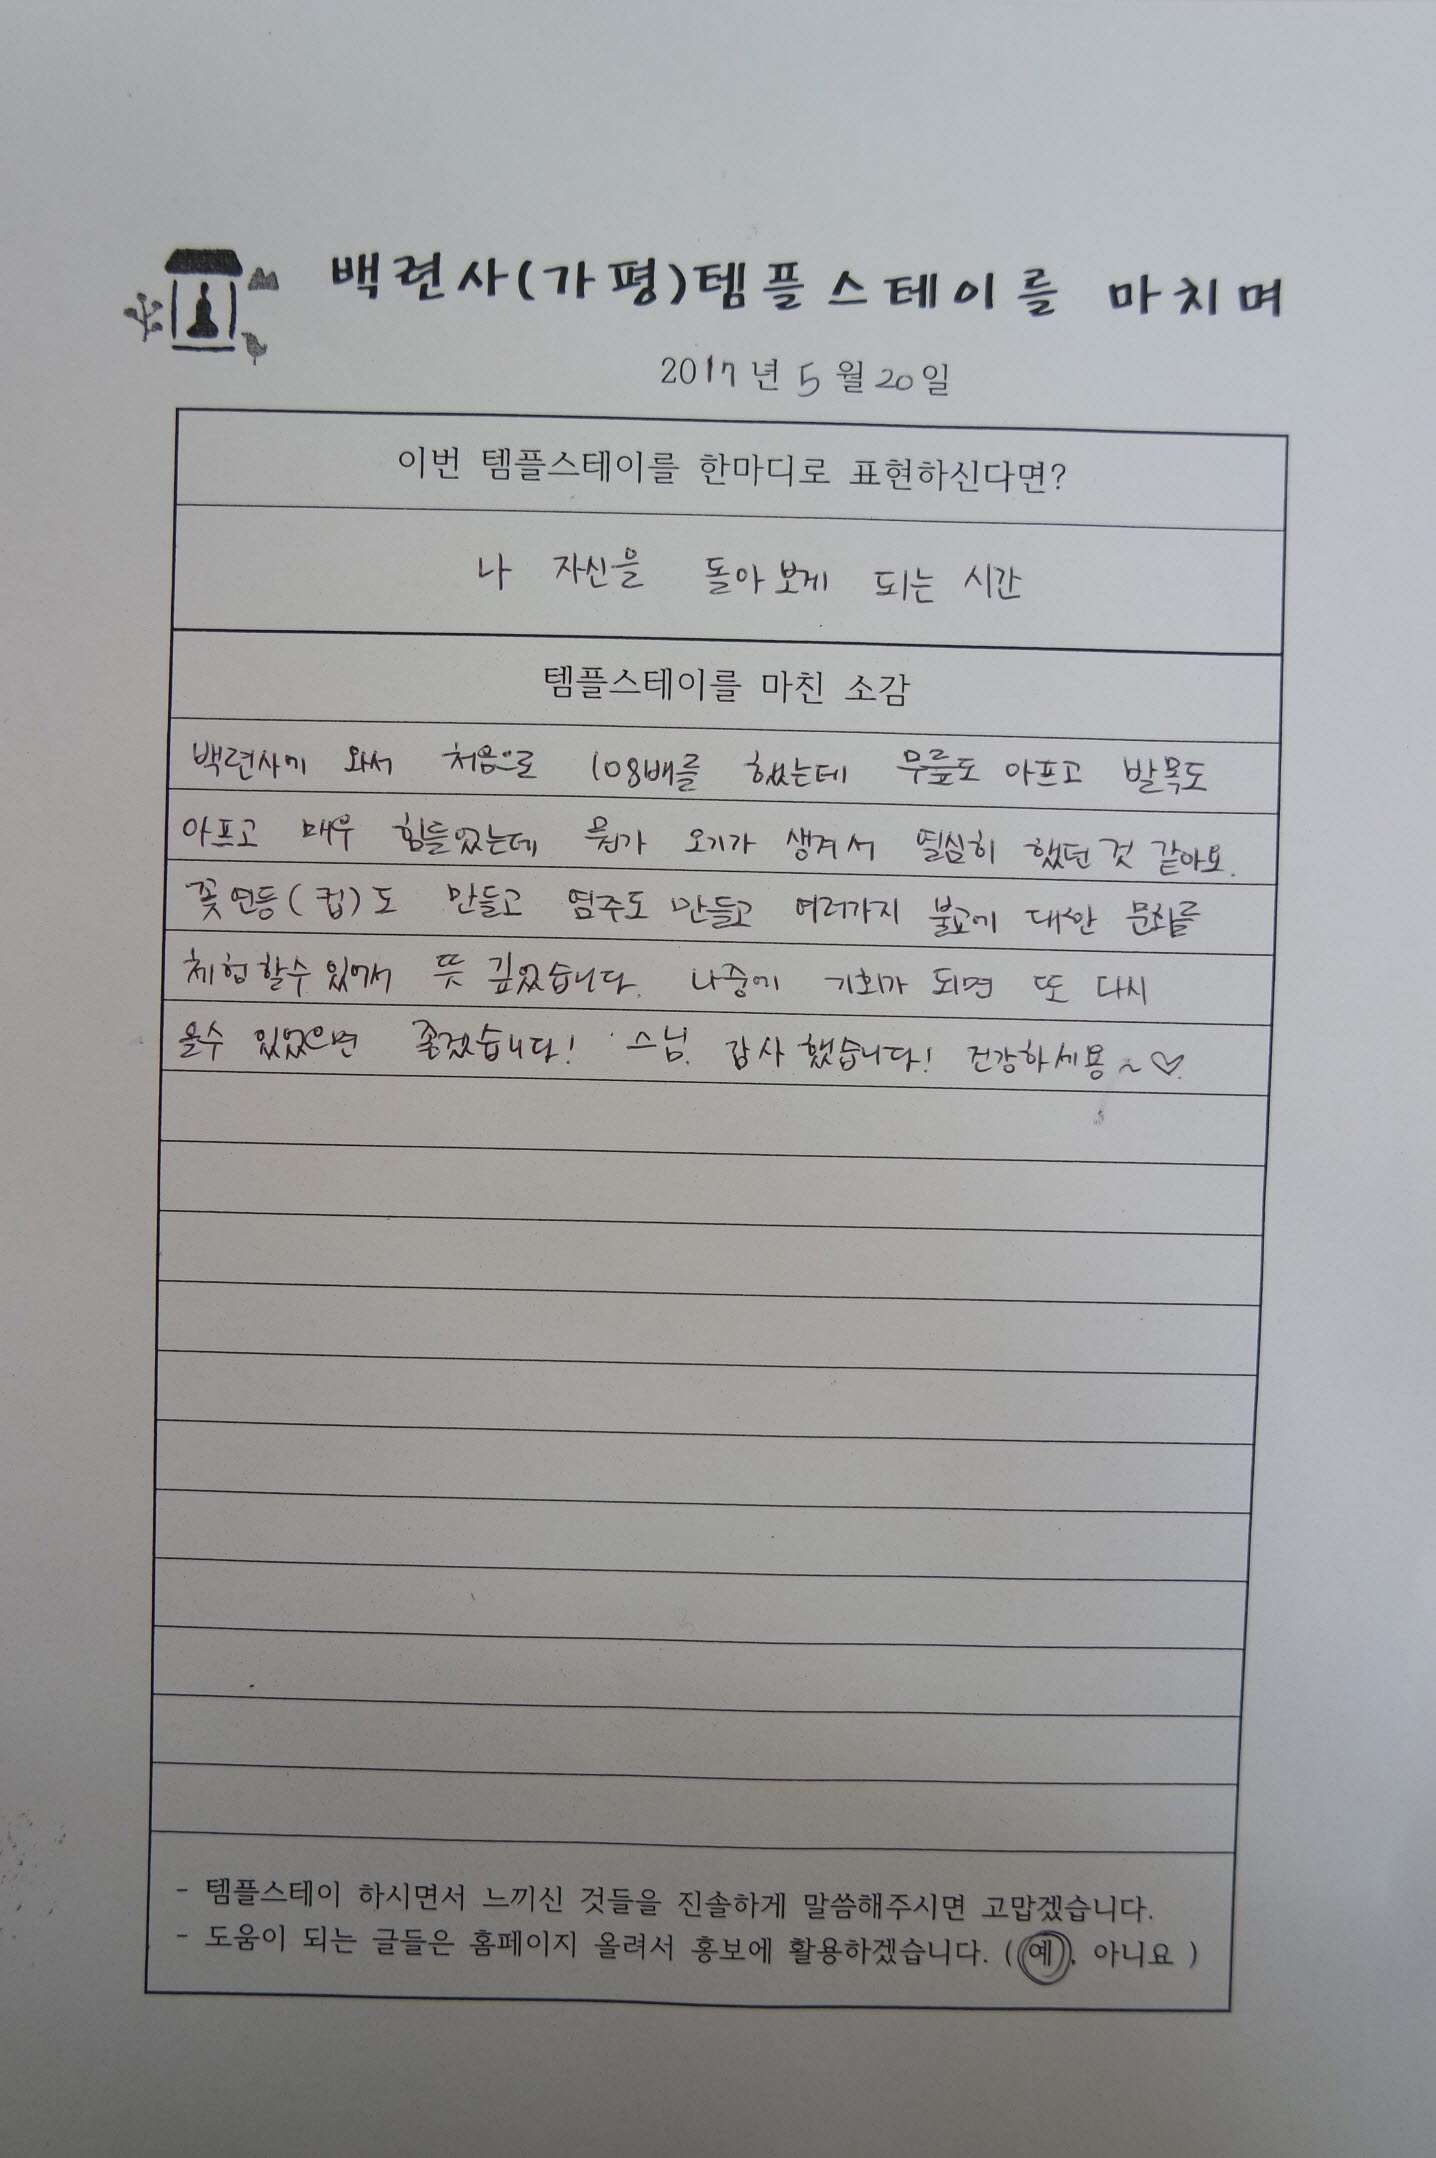 백련사(가평)템플스테이를 마치며
2017년 5월 20일
이번 템플스테이를 한마디로 표현하신다면?
나 자신을 돌아보게 되는 시간
템플스테이를 마친 소감
백련사에 와서 처음으로 108배를 했는데 무릎도 아프고 발목도
아프고 매우 힘들었는데 뭔가 오기가 생겨서 열심히 했던 것 같아요.
꽃연등(컵)도 만들고 염주도 만들고 여러가지 불교에 대한 문화를
체험할수 있어서 뜻 깊었습니다. 나중에 기회가 되면 또 다시
올수 있었으면 좋겠습니다! 스님. 감사했습니다! 건강하세용~♡
- 템플스테이 하시면서 느끼신 것들을 진솔하게 말씀해주시면 고맙겠습니다.
- 도움이 되는 글들은 홈페이지 올려서 홍보에 활용하겠습니다. (예, 아니요 )